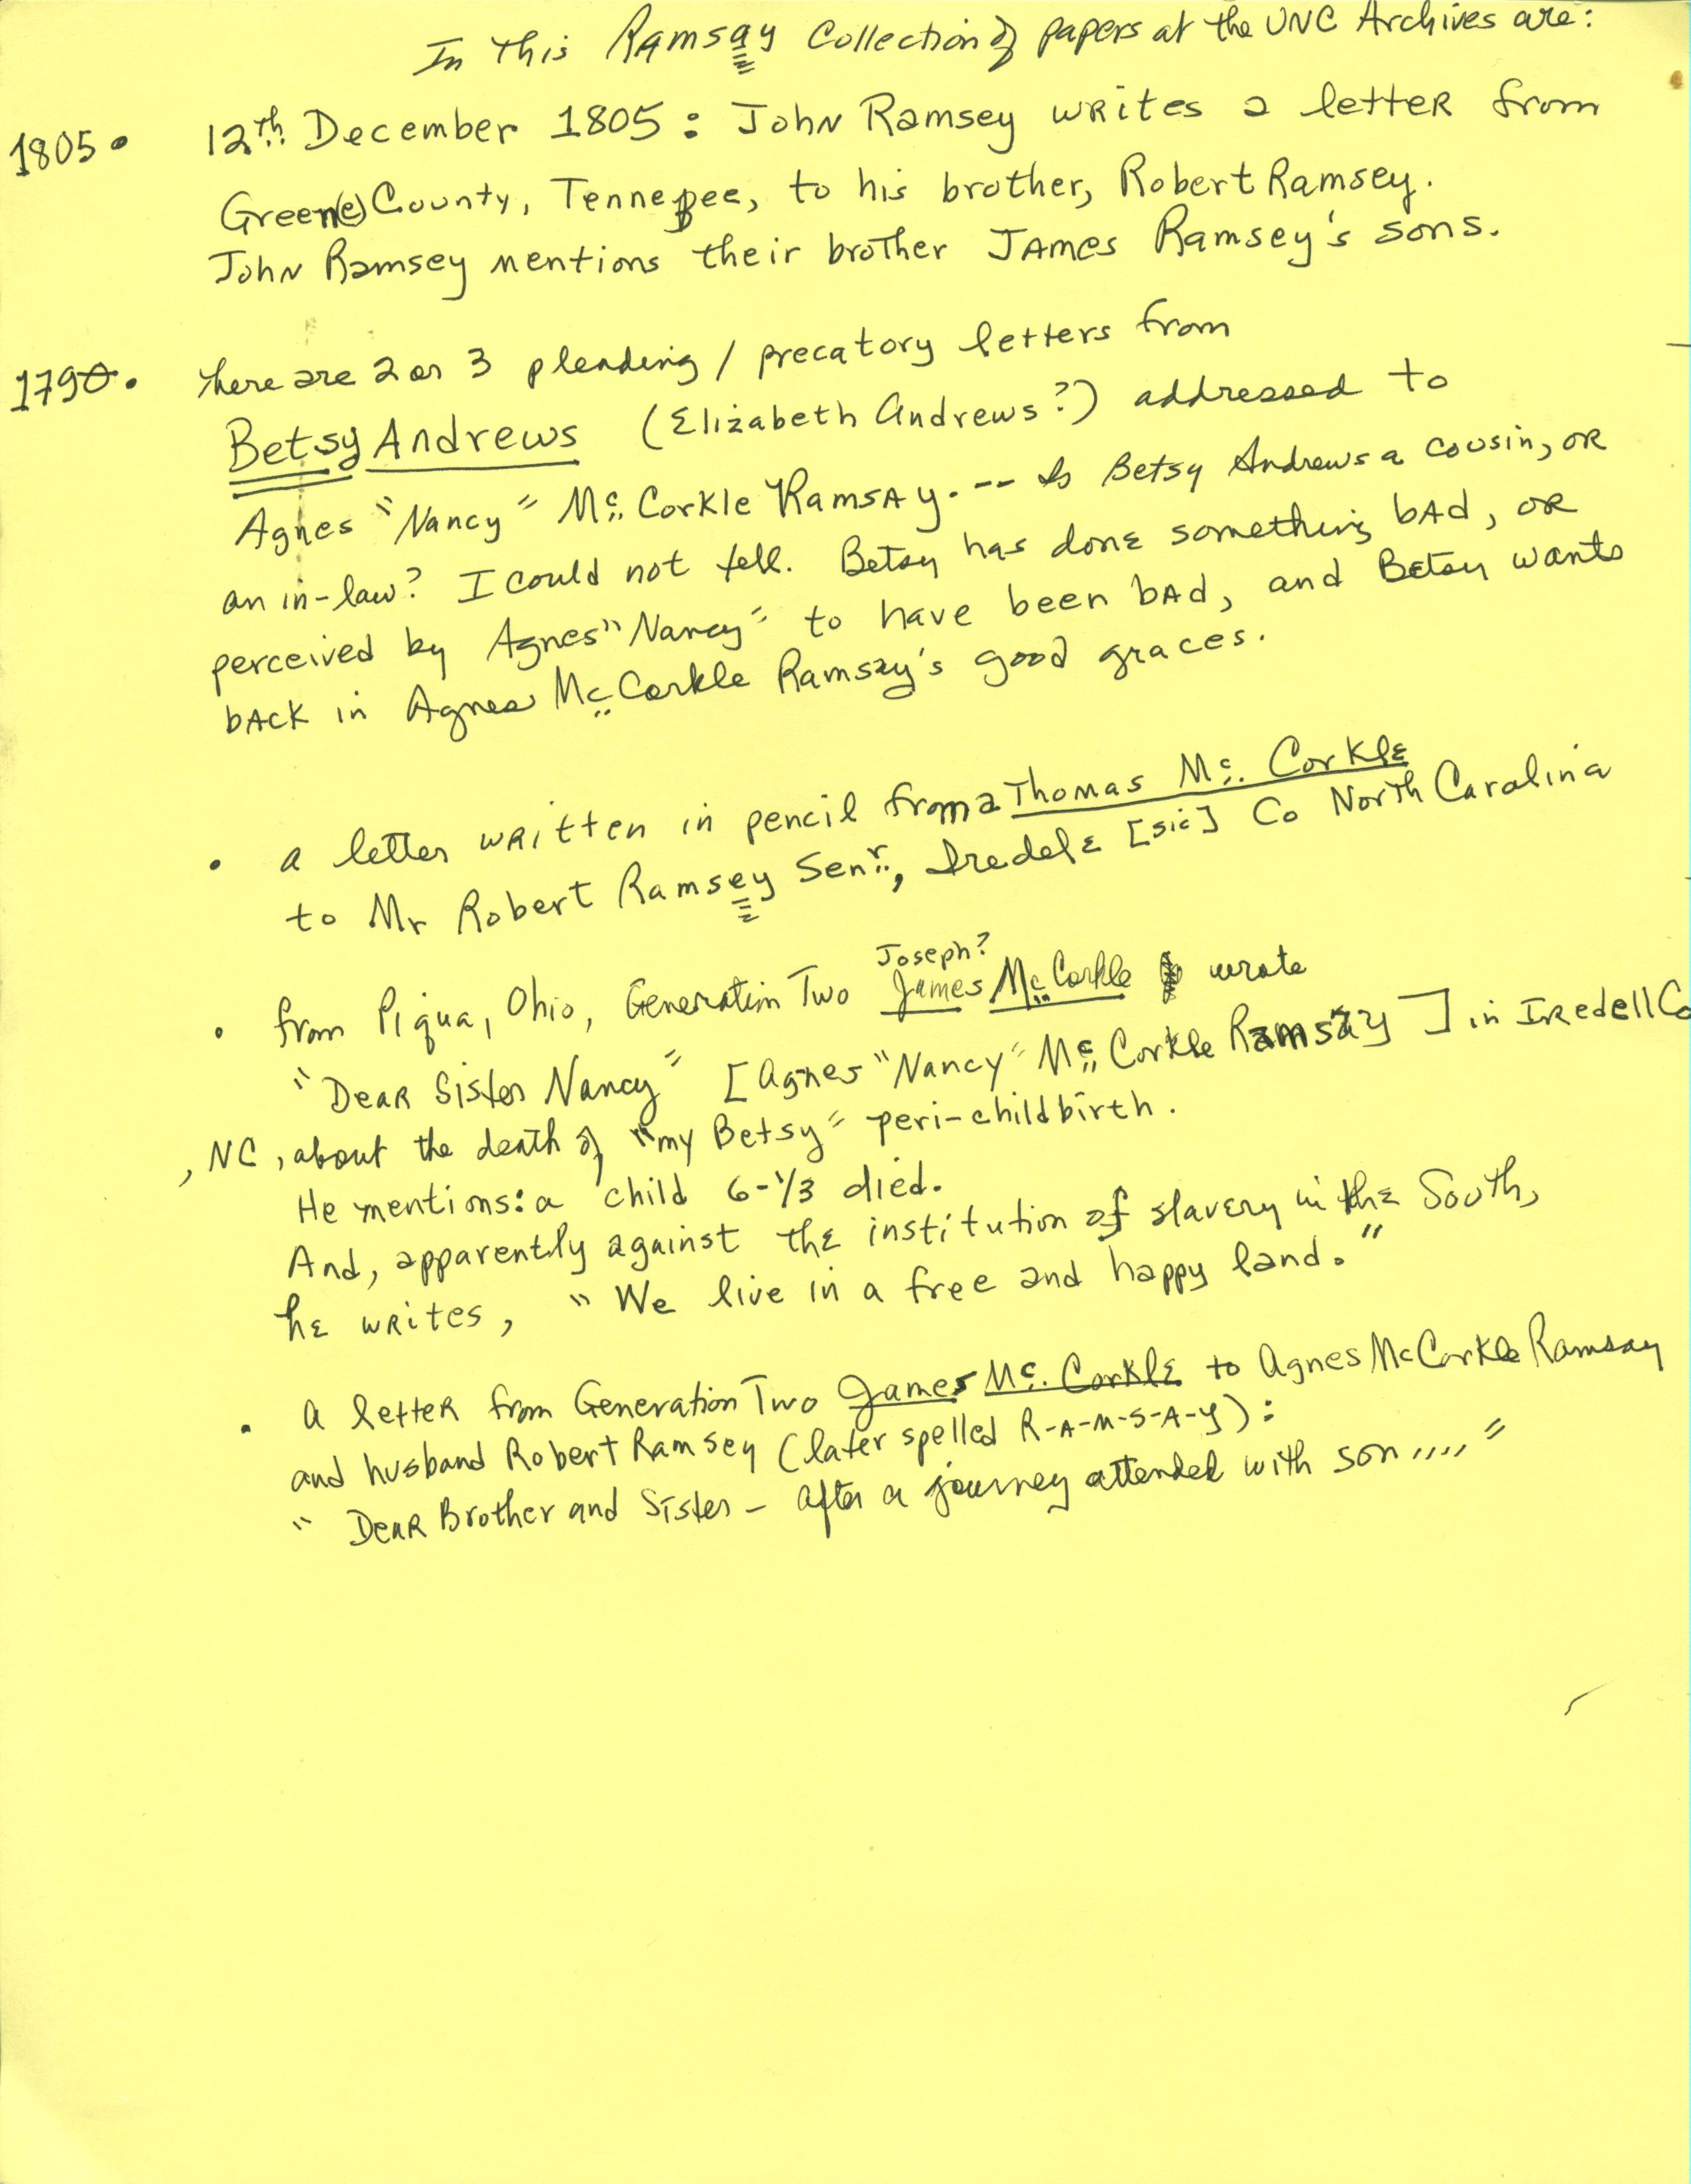 In This Ramsay Collection of papers at the UNC Archives are:
1805. 12th. December 1805: John Ramsey writes a letter from
Green(e) County, Tenneſsee, to his brother, Robert Ramsey.
John Ramsey mentions their brother James Ramsey's sons.
1790. there are 2 or 3 pleading / precatory letters from
Betsy Andrews (Elizabeth Andrews?) addressed to
Agnes "Nancy" Mc. Corkle Ramsay. -- Is Betsy Andrews a cousin, or
an in-law? I could not tell. Betsy has done something bad, or
perceived by Agnes "Nancy" to have been bad, and Betsy wants
back in Agnes Mc. Corkle Ramsay's good graces.
• a letter written in pencil from a Thomas Mc. Corkle
to Mr Robert Ramsey Senr., Iredele [sic] Co North Carolina
Joseph?
• from Piqua, Ohio, Generation Two James Mc. Corkle wrote
"Dear Sister Nancy" [Agnes "Nancy" Mc. Corkle Ramsay] in Iredell Co
, NC, about the death of "my Betsy" peri-childbirth.
He mentions: a child 6-1/3 died.
And, apparently against the institution of slavery in the South,
he writes, "We live in a free and happy land."
• a letter from Generation Two James Mc. Corkle to Agnes McCorkle Ramsay
and husband Robert Ramsey (later spelled R-A-M-S-A-Y):
"Dear Brother and Sister - after a journey attended with son...."